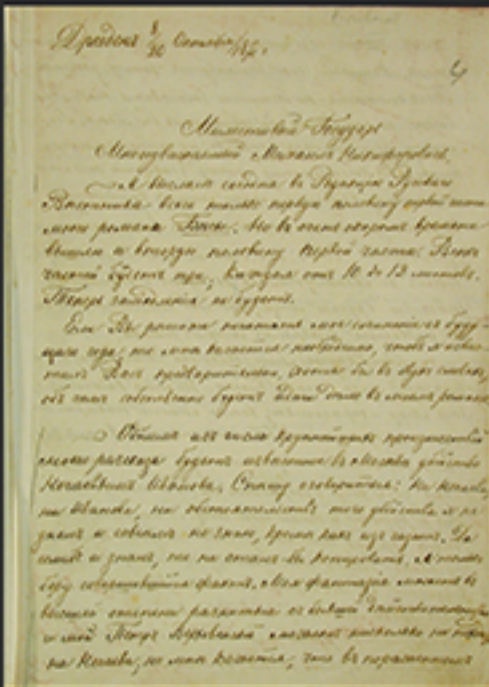 Дрезден 8/20 Октября/1870.
4
Милостивый Государь
Многоуважаемый Михаил Никифорович,
Я выслал сегодня в Редакцию Русского
Вестника всего только первую половину первой части
моего романа Бесы. Но в очень скором времени
вышлю и вторую половину первой части. Всех
частей будет три; каждая от 10 до 12 листов.
Теперь замедления не будет.
Если Вы решите печатать мое сочинение с буду-
щего года, то мне кажется необходимо, чтоб я изве-
стил Вас предварительно, хотя бы в двух словах,
об чем собственно будет идти дело в моем романе.
Одним из числа крупнейших происшествий
моего рассказа будет известное в Москве убийство
Нечаевым Иванова. Спешу оговориться: ни Нечаева,
ни Иванова, ни обстоятельств того убийства я не
знал и совсем не знаю, кроме как из газет. Да
если б и знал, то не стал бы копировать. Я только
беру совершившийся факт. Моя фантазия может в
высшей степени разниться с бывшей действительностию
и мой Петр Верховенский может нисколько не походить
на Нечаева; но мне кажется, что в пораженном